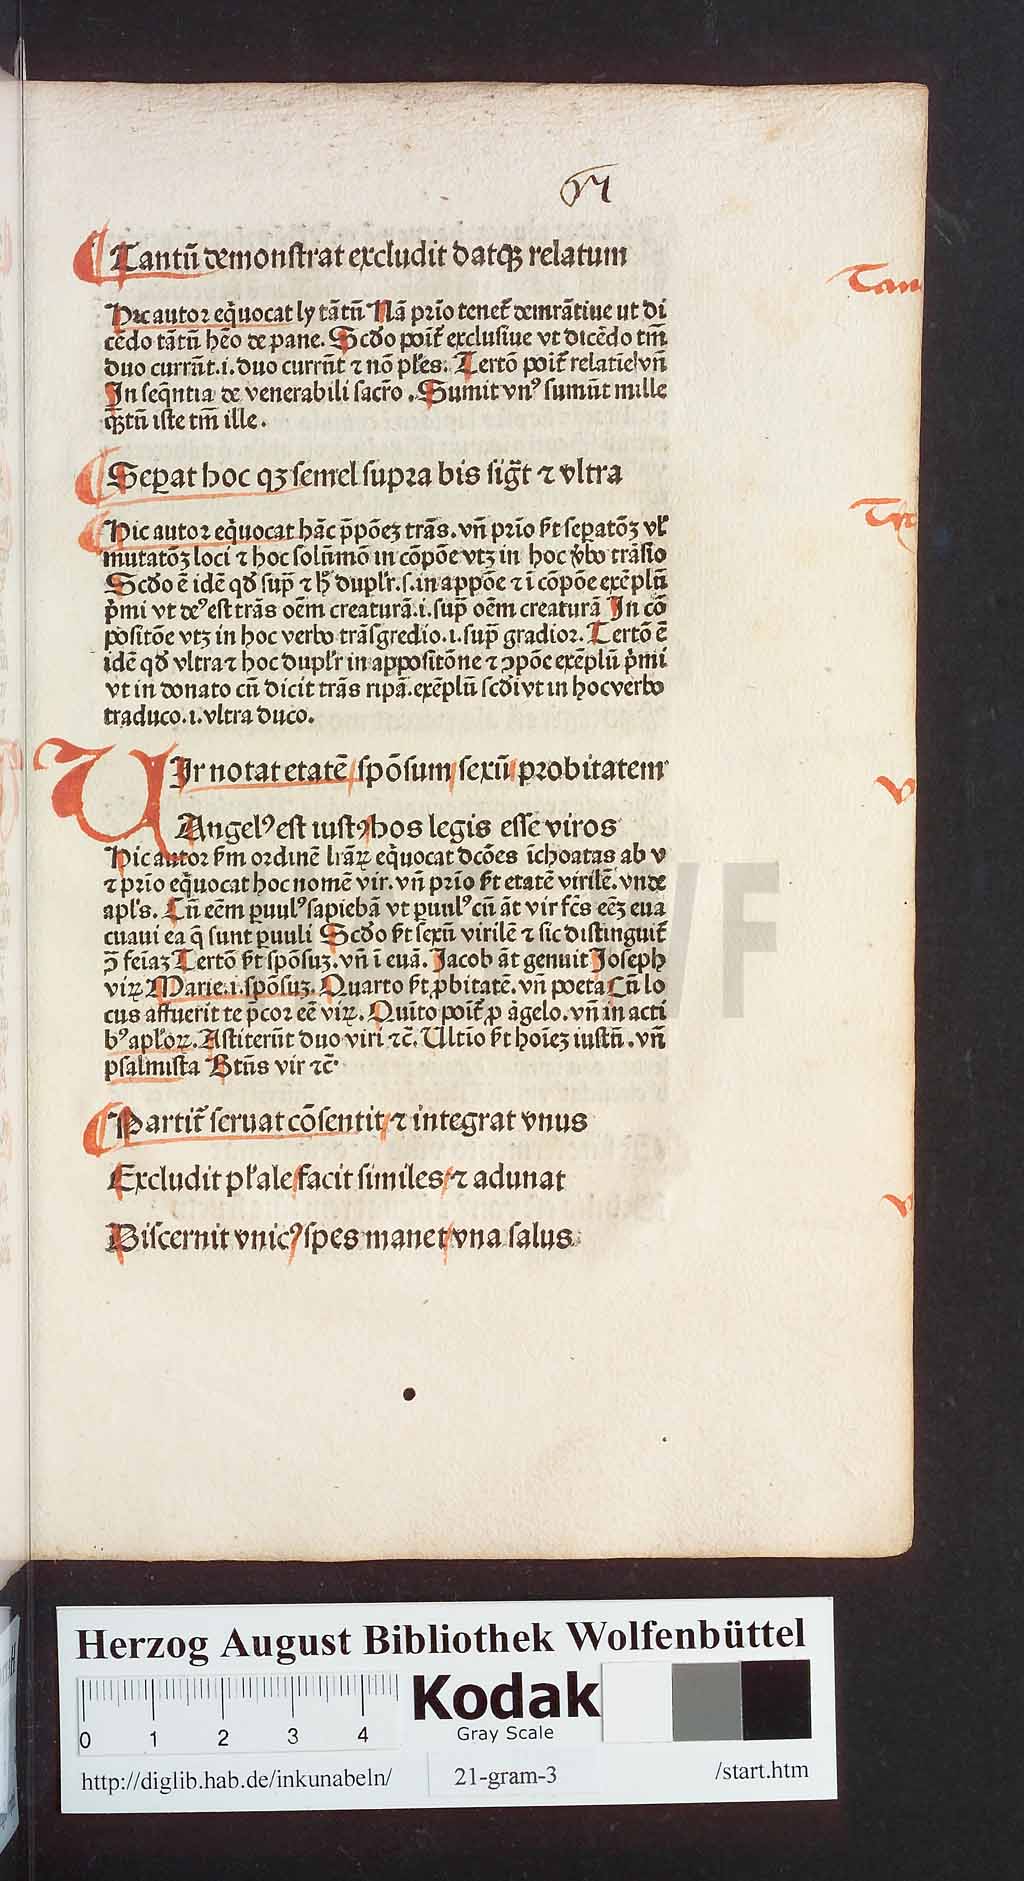 Tantū demonstrat excludit datqꝫ relatum
Tan
Hic autor eq̄uocat ly tātū Nā prīo tenet᷑ demrātiue ut di
cēdo tātū hēo de pane. Scd̄o poīt᷑ exclusiue vt dicēdo tm̄
duo currūt.i. duo currūt ⁊ nō pl̄es. Tertō poīt᷑ relatīe vn̄
In seq̄ntia de venerabili sacr̄o. Sumit vnꝰ sumūt mille
q̄ꝫtū iste tm̄ ille.
Sepat hoc qꝫ semel supra bis sig̅t ⁊ vltra
Hic autor eq̄uocat hāc p̄pōeꝫ trās. vn̄ prīo s̄t sepatōꝫ vl̄
mutatōꝫ loci ⁊ hoc solūmō in cōpōe vtꝫ in hoc v̄bo trāsio
Scd̄o ē idē qd̄ sup̄ ⁊ h̄ dupl̄r.s. in appōe ⁊ ī cōpōe exēplū
p̄mi vt deꝰ est trās oēm creaturā.i. sup̄ oēm creaturā In cō
positōe vtꝫ in hoc verbo trāsgredio.i. sup̄ gradior. Tertō ē
idē qd̄ vltra ⁊ hoc dupl̄r in appositōne ⁊ ꝯpōe exēplū p̄mi
vt in donato cū dicit trās ripā. exēplū scd̄i vt in hoc verbo
traduco.i. vltra duco.
VIr notat etatē/ spōsum/ sexū/ probitatem
v
Angelꝰ est iustꝯ hos legis esse viros
Hic autor s̄m ordinē lr̄āꝝ eq̄uocat dcōes īchoatas ab v
⁊ prīo eq̄uocat hoc nomē vir. vn̄ prīo s̄t etatē virilē. vnde
apl̄s. Cū eēm puulꝰ sapiebā vt puulꝰ cū āt vir fc̄s eēꝫ eua
cuaui ea q̄ sunt puuli Scd̄o s̄t sexū virilē ⁊ sic distinguit᷑
ꝯ̄ feīaꝫ Tertō s̄t spōsuꝫ. vn̄ ī euā. Jacob āt genuit Joseph
viꝝ Marie.i. spōsuꝫ. Quarto s̄t ꝓbitatē. vn̄ poeta Cū lo
cus affuerit te p̄cor eē viꝝ. Quīto poīt᷑ ꝓ āgelo. vn̄ in acti
bꝰ apl̄oꝝ. Astiterūt duo viri ⁊c̄. Ultīo s̄t hoīeꝫ iustū. vn̄
psalmista Btūs vir ⁊c̄
Partit᷑ seruat cōsentit/ ⁊ integrat vnus
Excludit pl̄ale/ facit similes/ ⁊ adunat
v
Discernit vnicꝰ/ spes manet/ vna salus
Herzog August Bibliothek Wolfenbüttel
0 1 2 3 4
Kodak
Gray Scale
http://diglib.hab.de/inkunabeln/
21-gram-3
/start.htm